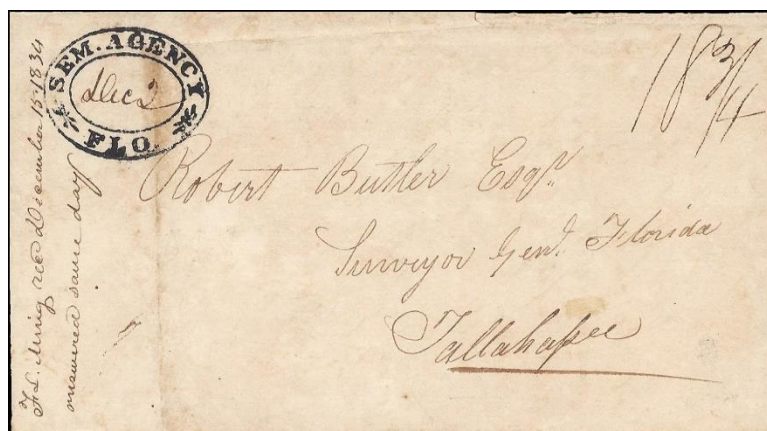 SEM. AGENCY
Dec 2
FLO.
18 3/4
Robert Butler Esqr.
Surveyor Genl. Florida
Tallahassee
recd December 15 1834
answered same day